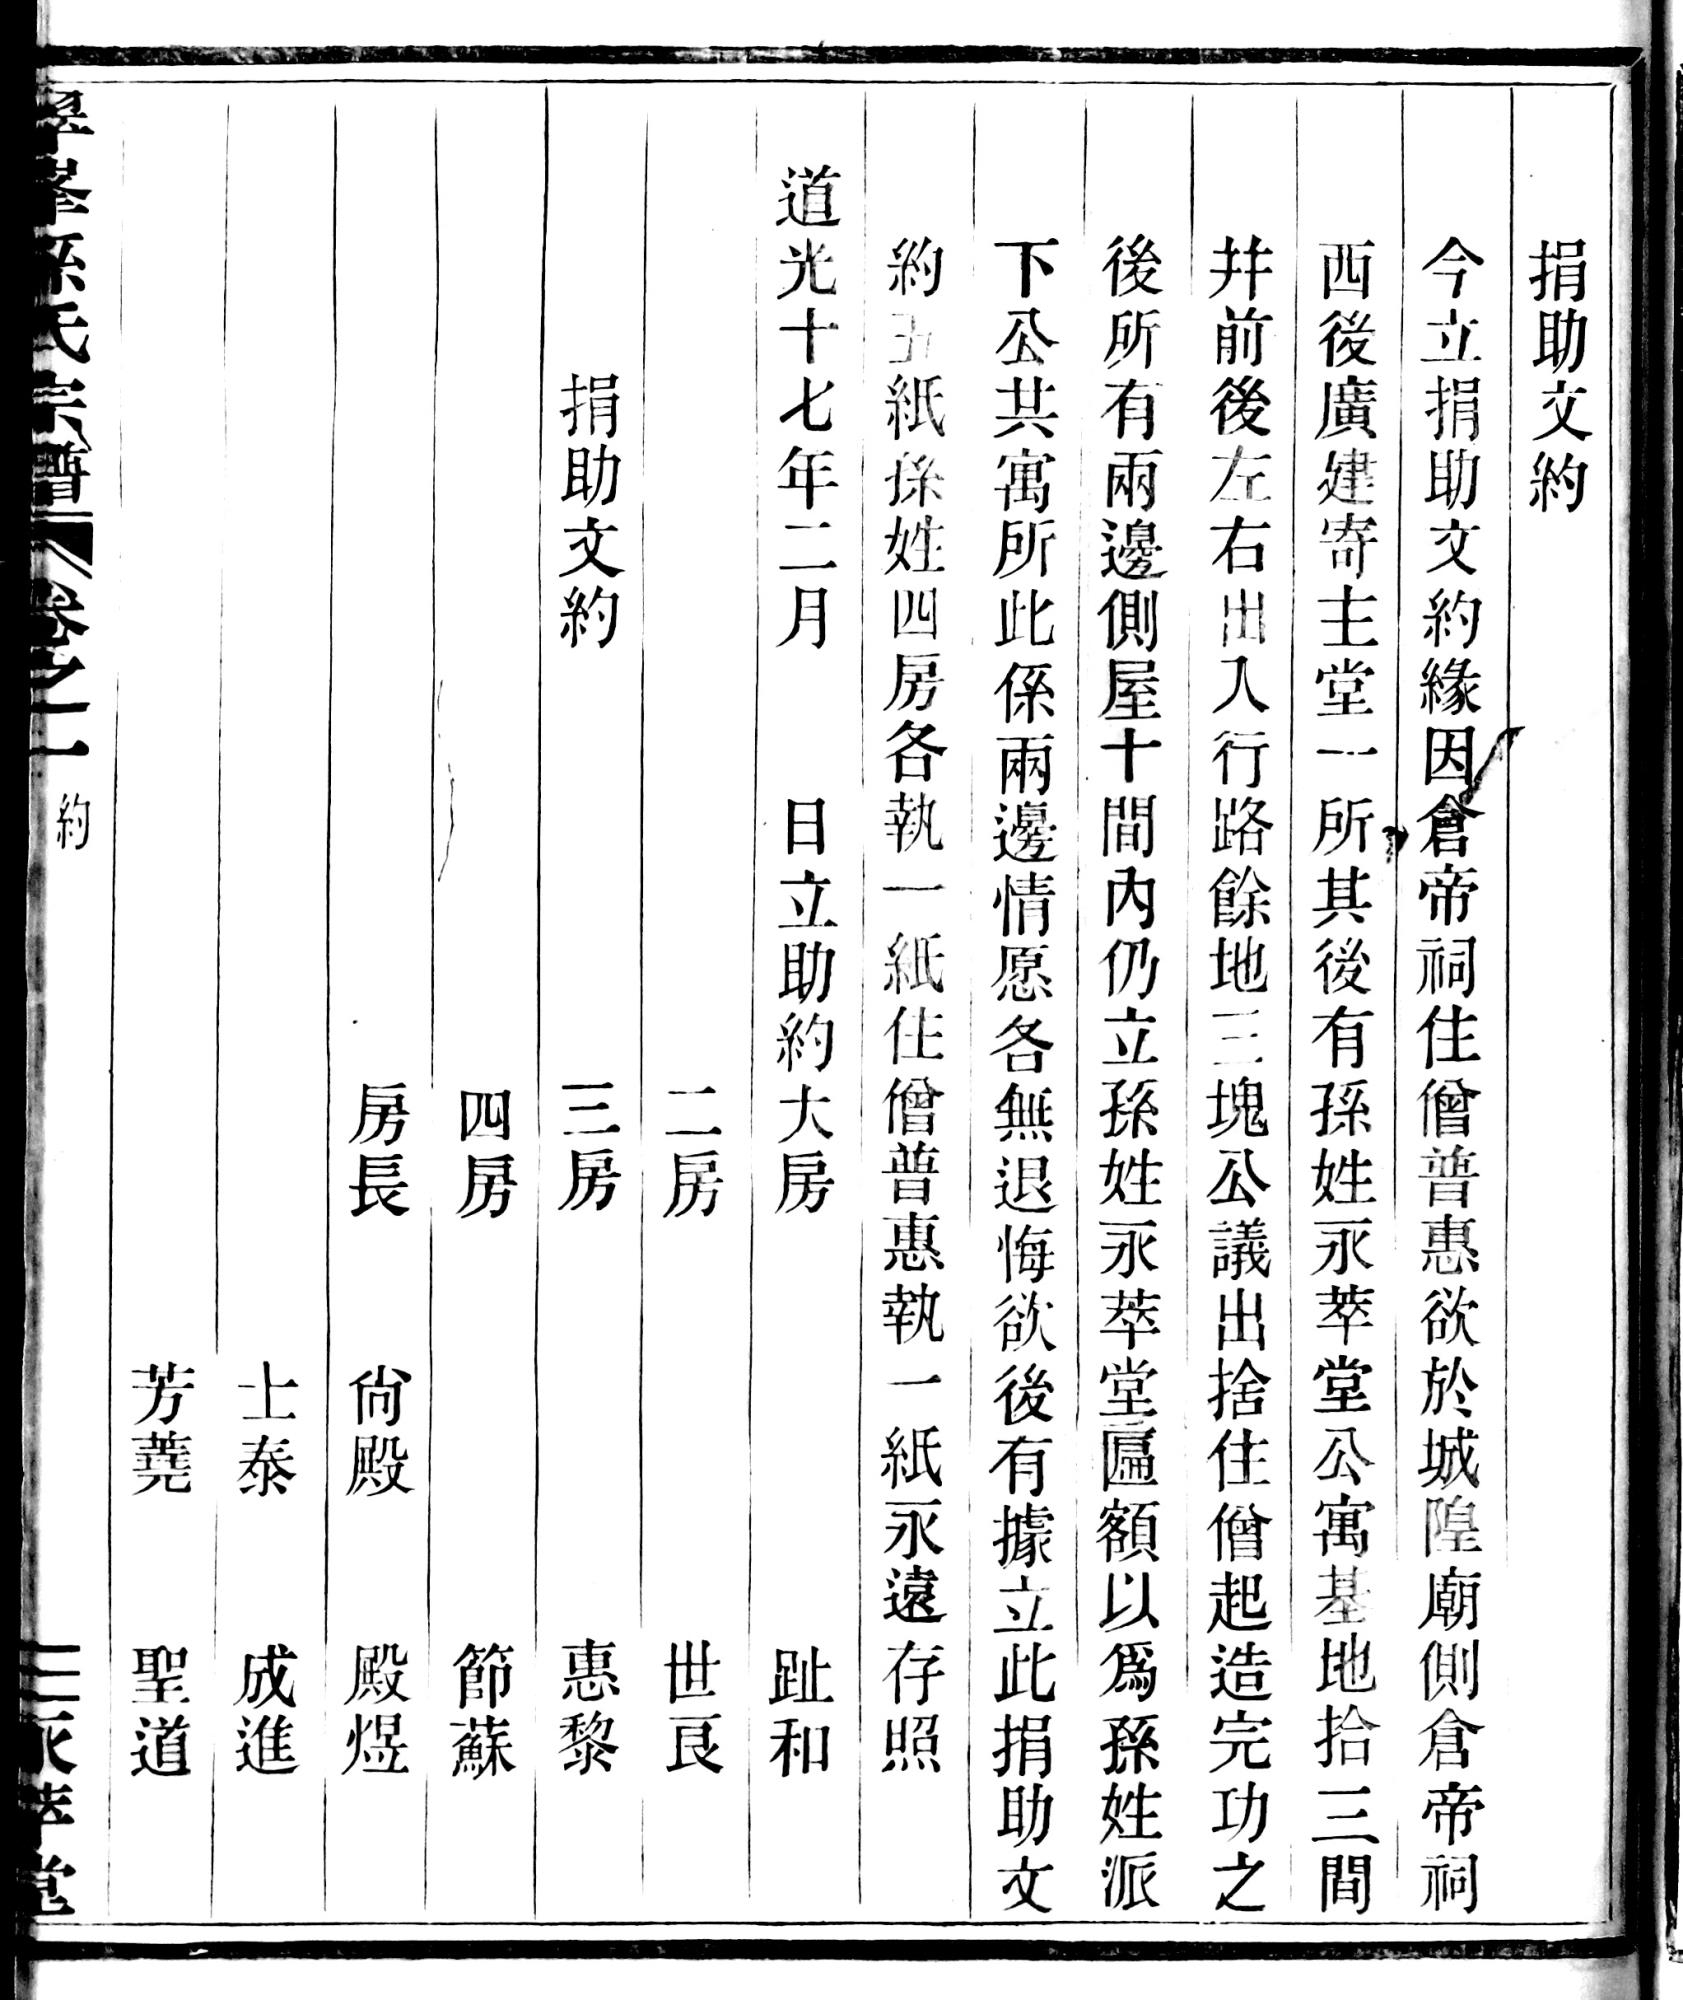 捐助文約
今立捐助文約緣因倉帝祠住僧普惠欲於城隍廟側倉帝祠
西後廣建寄主堂一所其後有孫姓永萃堂公寓基地拾三間
并前後左右出入行路餘地三塊公議出捨住僧起造完功之
後所有兩邊側屋十間內仍立孫姓永萃堂匾額以爲孫姓派
下公共寓所此係兩邊情愿各無退悔欲後有據立此捐助文
約五紙孫姓四房各執一紙住僧普惠執一紙永遠存照
道光十七年二月 日立助約大房 趾和
二房 世良
捐助文約 三房 惠黎
四房 節蘇
房長 尙殿 殿煜
士泰 成進
芳蕘 聖道
孫氏宗譜 卷之一 約 永萃堂